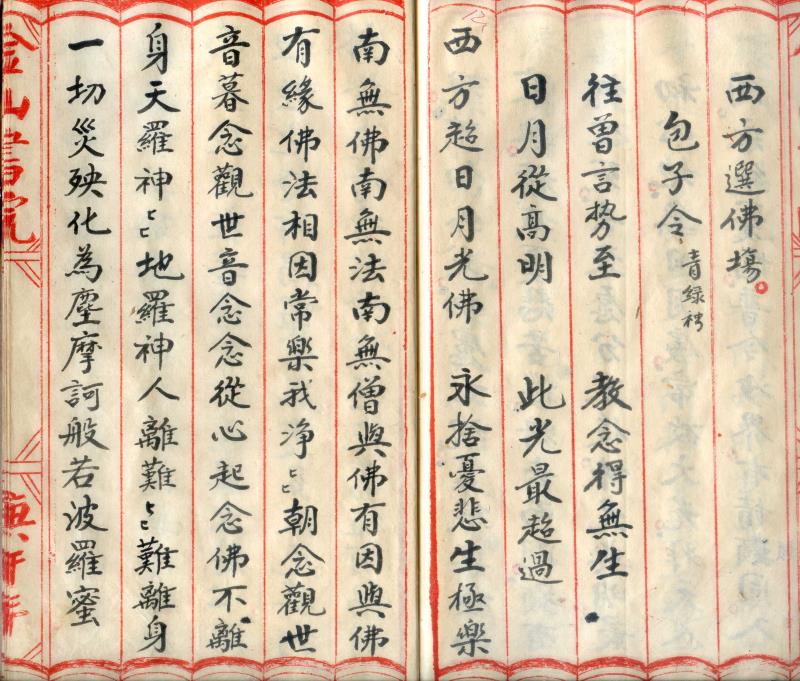 西方選佛場
包子令 青緑衬
往曾言势至 教念得無生
日月從高明 此光最超過
西方超日月光佛 永捨憂悲生極樂
南無佛南無法南無僧與佛有因與佛
有緣佛法相因常樂我净〻朝念觀世
音暮念觀世音念念從心起念佛不離
身天羅神〻地羅神人離難〻難離身
一切災殃化為塵摩訶般若波羅蜜
金山書院
庚午年